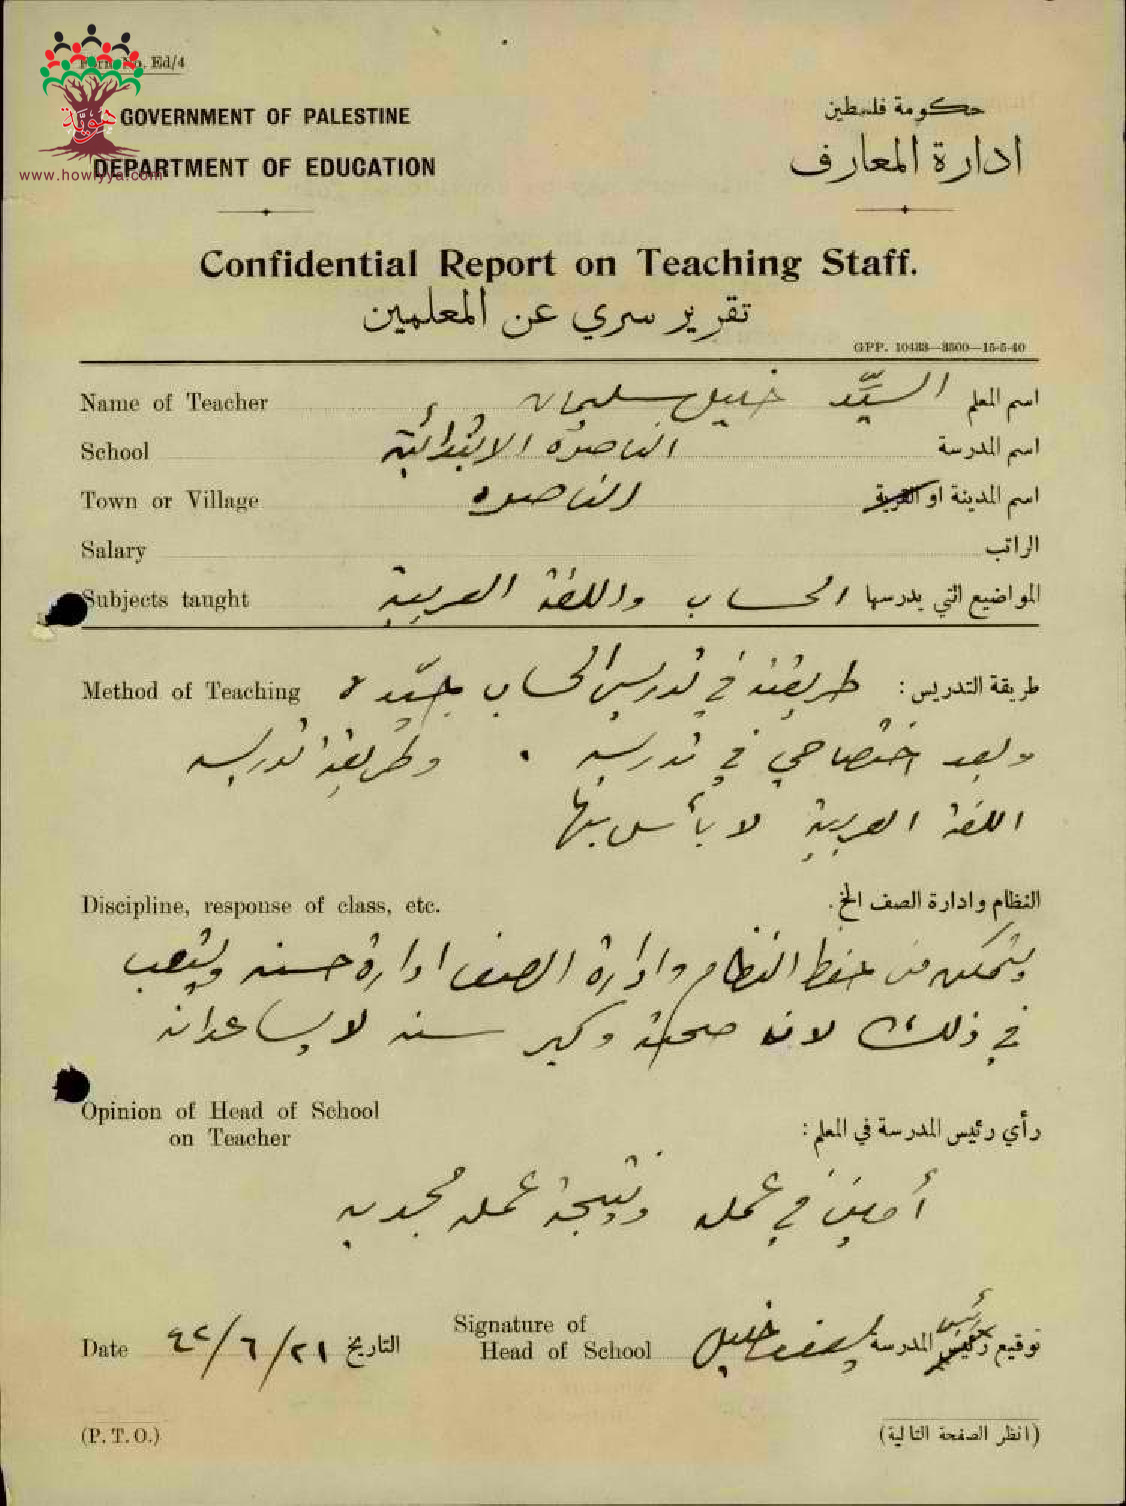 Form No. Ed/4
هوية
www.howiyya.com
GOVERNMENT OF PALESTINE
DEPARTMENT OF EDUCATION
حكومة فلسطين
ادارة المعارف
Confidential Report on Teaching Staff.
تقرير سري عن المعلمين
GPP. 10433—3500—15-5-40
Name of Teacher السيّد خليل سليمان اسم المعلم
School الناصرة الابتدائية اسم المدرسة
Town or Village الناصره اسم المدينة او القرية
Salary الراتب
Subjects taught الحساب واللغة العربية المواضيع التي يدرسها
Method of Teaching طريقة التدريس: طريقته في تدريس الحساب جيّده
ويعد اختصاصي في تدريسه . وطريقة تدريسه
اللغة العربية لا بأس بها
Discipline, response of class, etc. النظام وادارة الصف الخ.
ويتمكن من حفظ النظام وادارة الصف ادارة حسنه ويتعب
في ذلك لان صحته وكبر سنه لا يساعدانه
Opinion of Head of School
on Teacher
رأي رئيس المدرسة في المعلم:
أمين في عمله ونتيجة عمله مجديه
Date ٤٢/٦/٢١ التاريخ
Signature of
Head of School خليل توقيع رئيس المدرسة
(P. T. O.) (انظر الصفحة التالية)